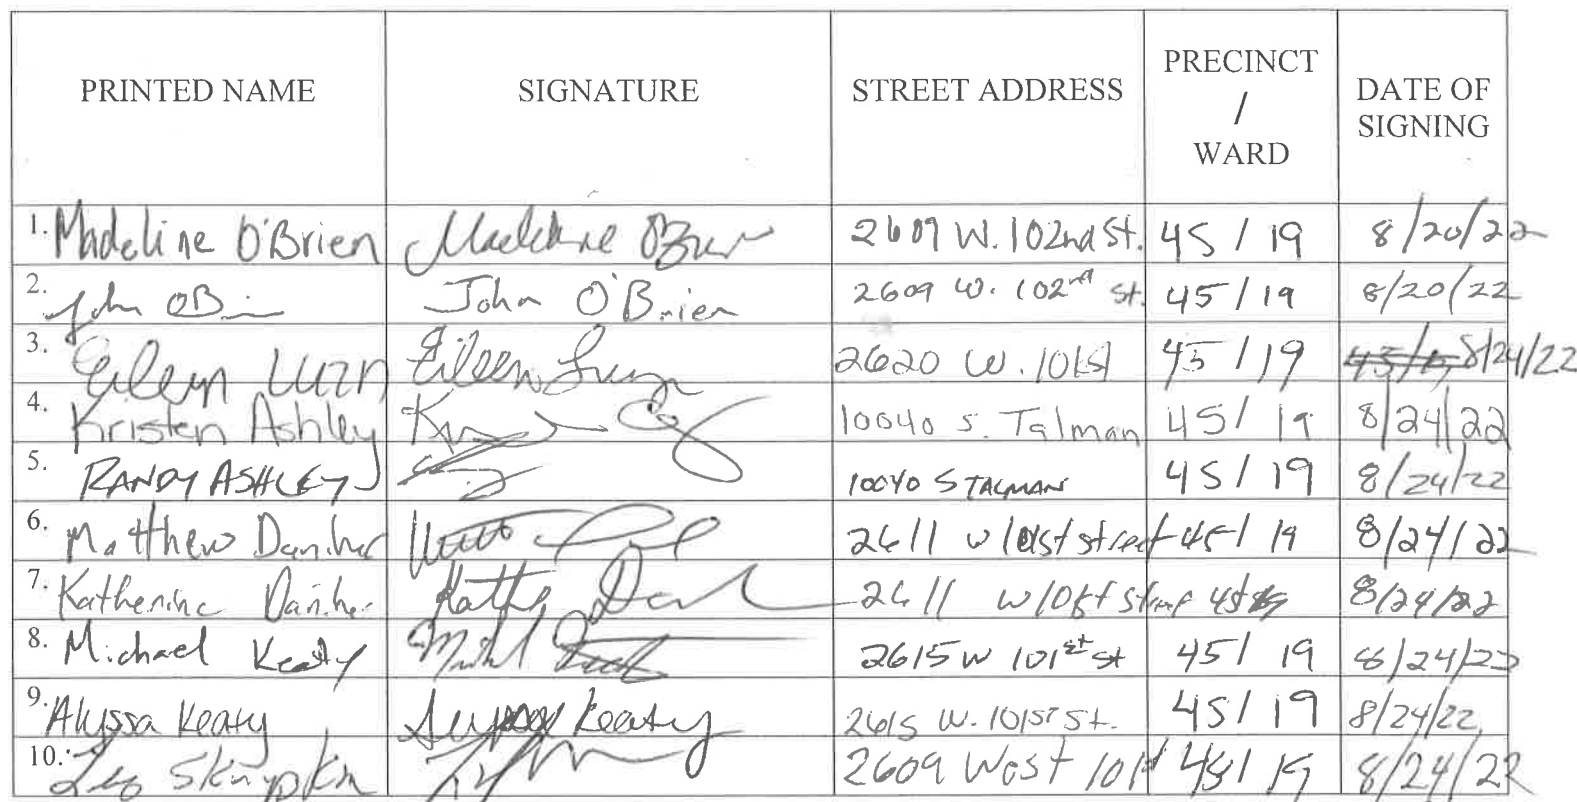 PRINTED NAME SIGNATURE STREET ADDRESS PRECINCT / WARD DATE OF SIGNING
1. Madeline O'Brien Madeline O'Brien 2609 W. 102nd St. 45 / 19 8/20/22
2. John OB John O'Brien 2609 W. 102nd St. 45 / 19 8/20/22
3. Eileen Eileen 2620 W. 101st 45 / 19 8/24/22
4. Kristen Ashley 10040 S. Talman 45 / 19 8/24/22
5. RANDY ASHLEY 10040 S TALMAN 45 / 19 8/24/22
6. Matthew Daniher 2611 W 101st street 45 / 19 8/24/22
7. Katherine Daniher 2611 W 101st street 45 8/24/22
8. Michael Keaty 2615 W 101st st 45 / 19 8/24/22
9. Alyssa Keaty Keaty 2615 W. 101ST St. 45 / 19 8/24/22
10. 2609 West 101st 45 / 19 8/24/22